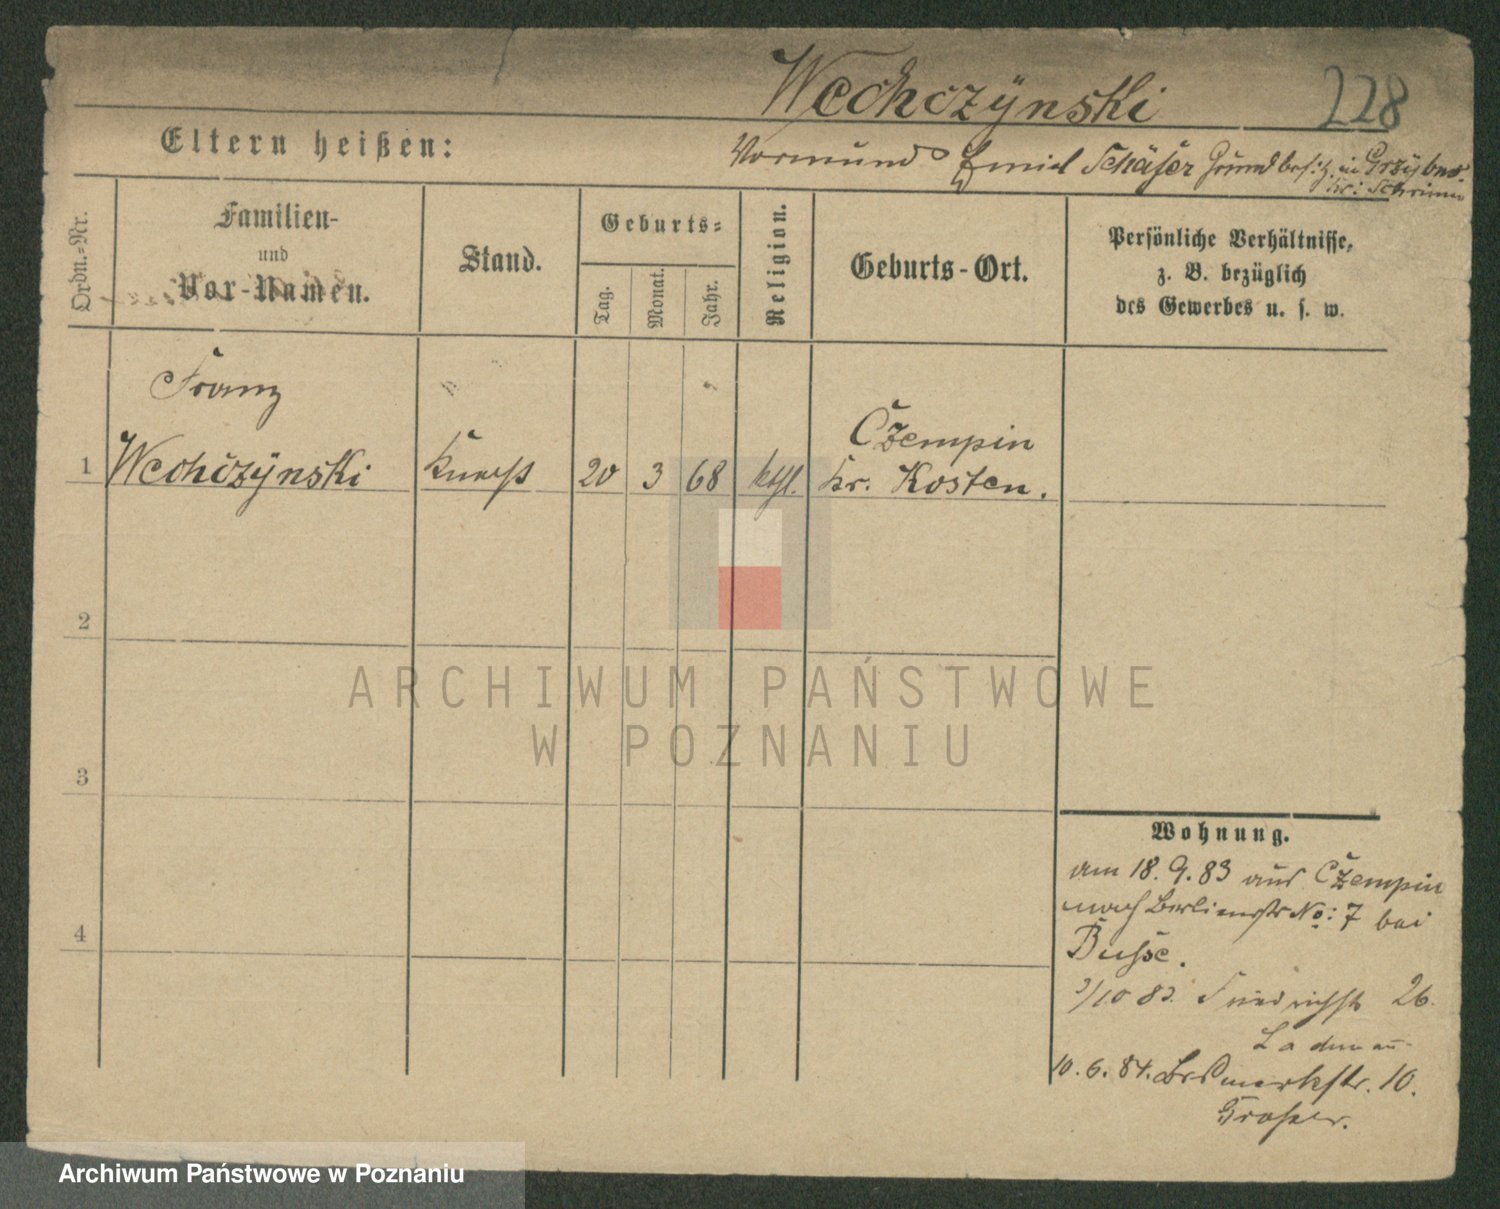 Wechczÿnski 228
Eltern heißen:
Vormund Emil Schäfer Grundbesitz. in
Kr: Schrimm
Ordn.-Nr.
Familien-
und
Vor-Namen.
Stand.
Geburts-
Tag.
Monat.
Jahr.
Religion.
Geburts-Ort.
Persönliche Verhältnisse,
z. B. bezüglich
des Gewerbes u. s. w.
Franz
1 Wechczÿnski 20 3 68 kthl.
Czempin
Kr. Kosten.
2
3
4
Wohnung.
am 18. 9. 83 aus Czempin
nach Berlinerstr No: 7 bei
Busse.
/10 83. Friedrichstr 26.
10. 6. 84. 10.
ARCHIWUM PAŃSTWOWE
W POZNANIU
Archiwum Państwowe w Poznaniu